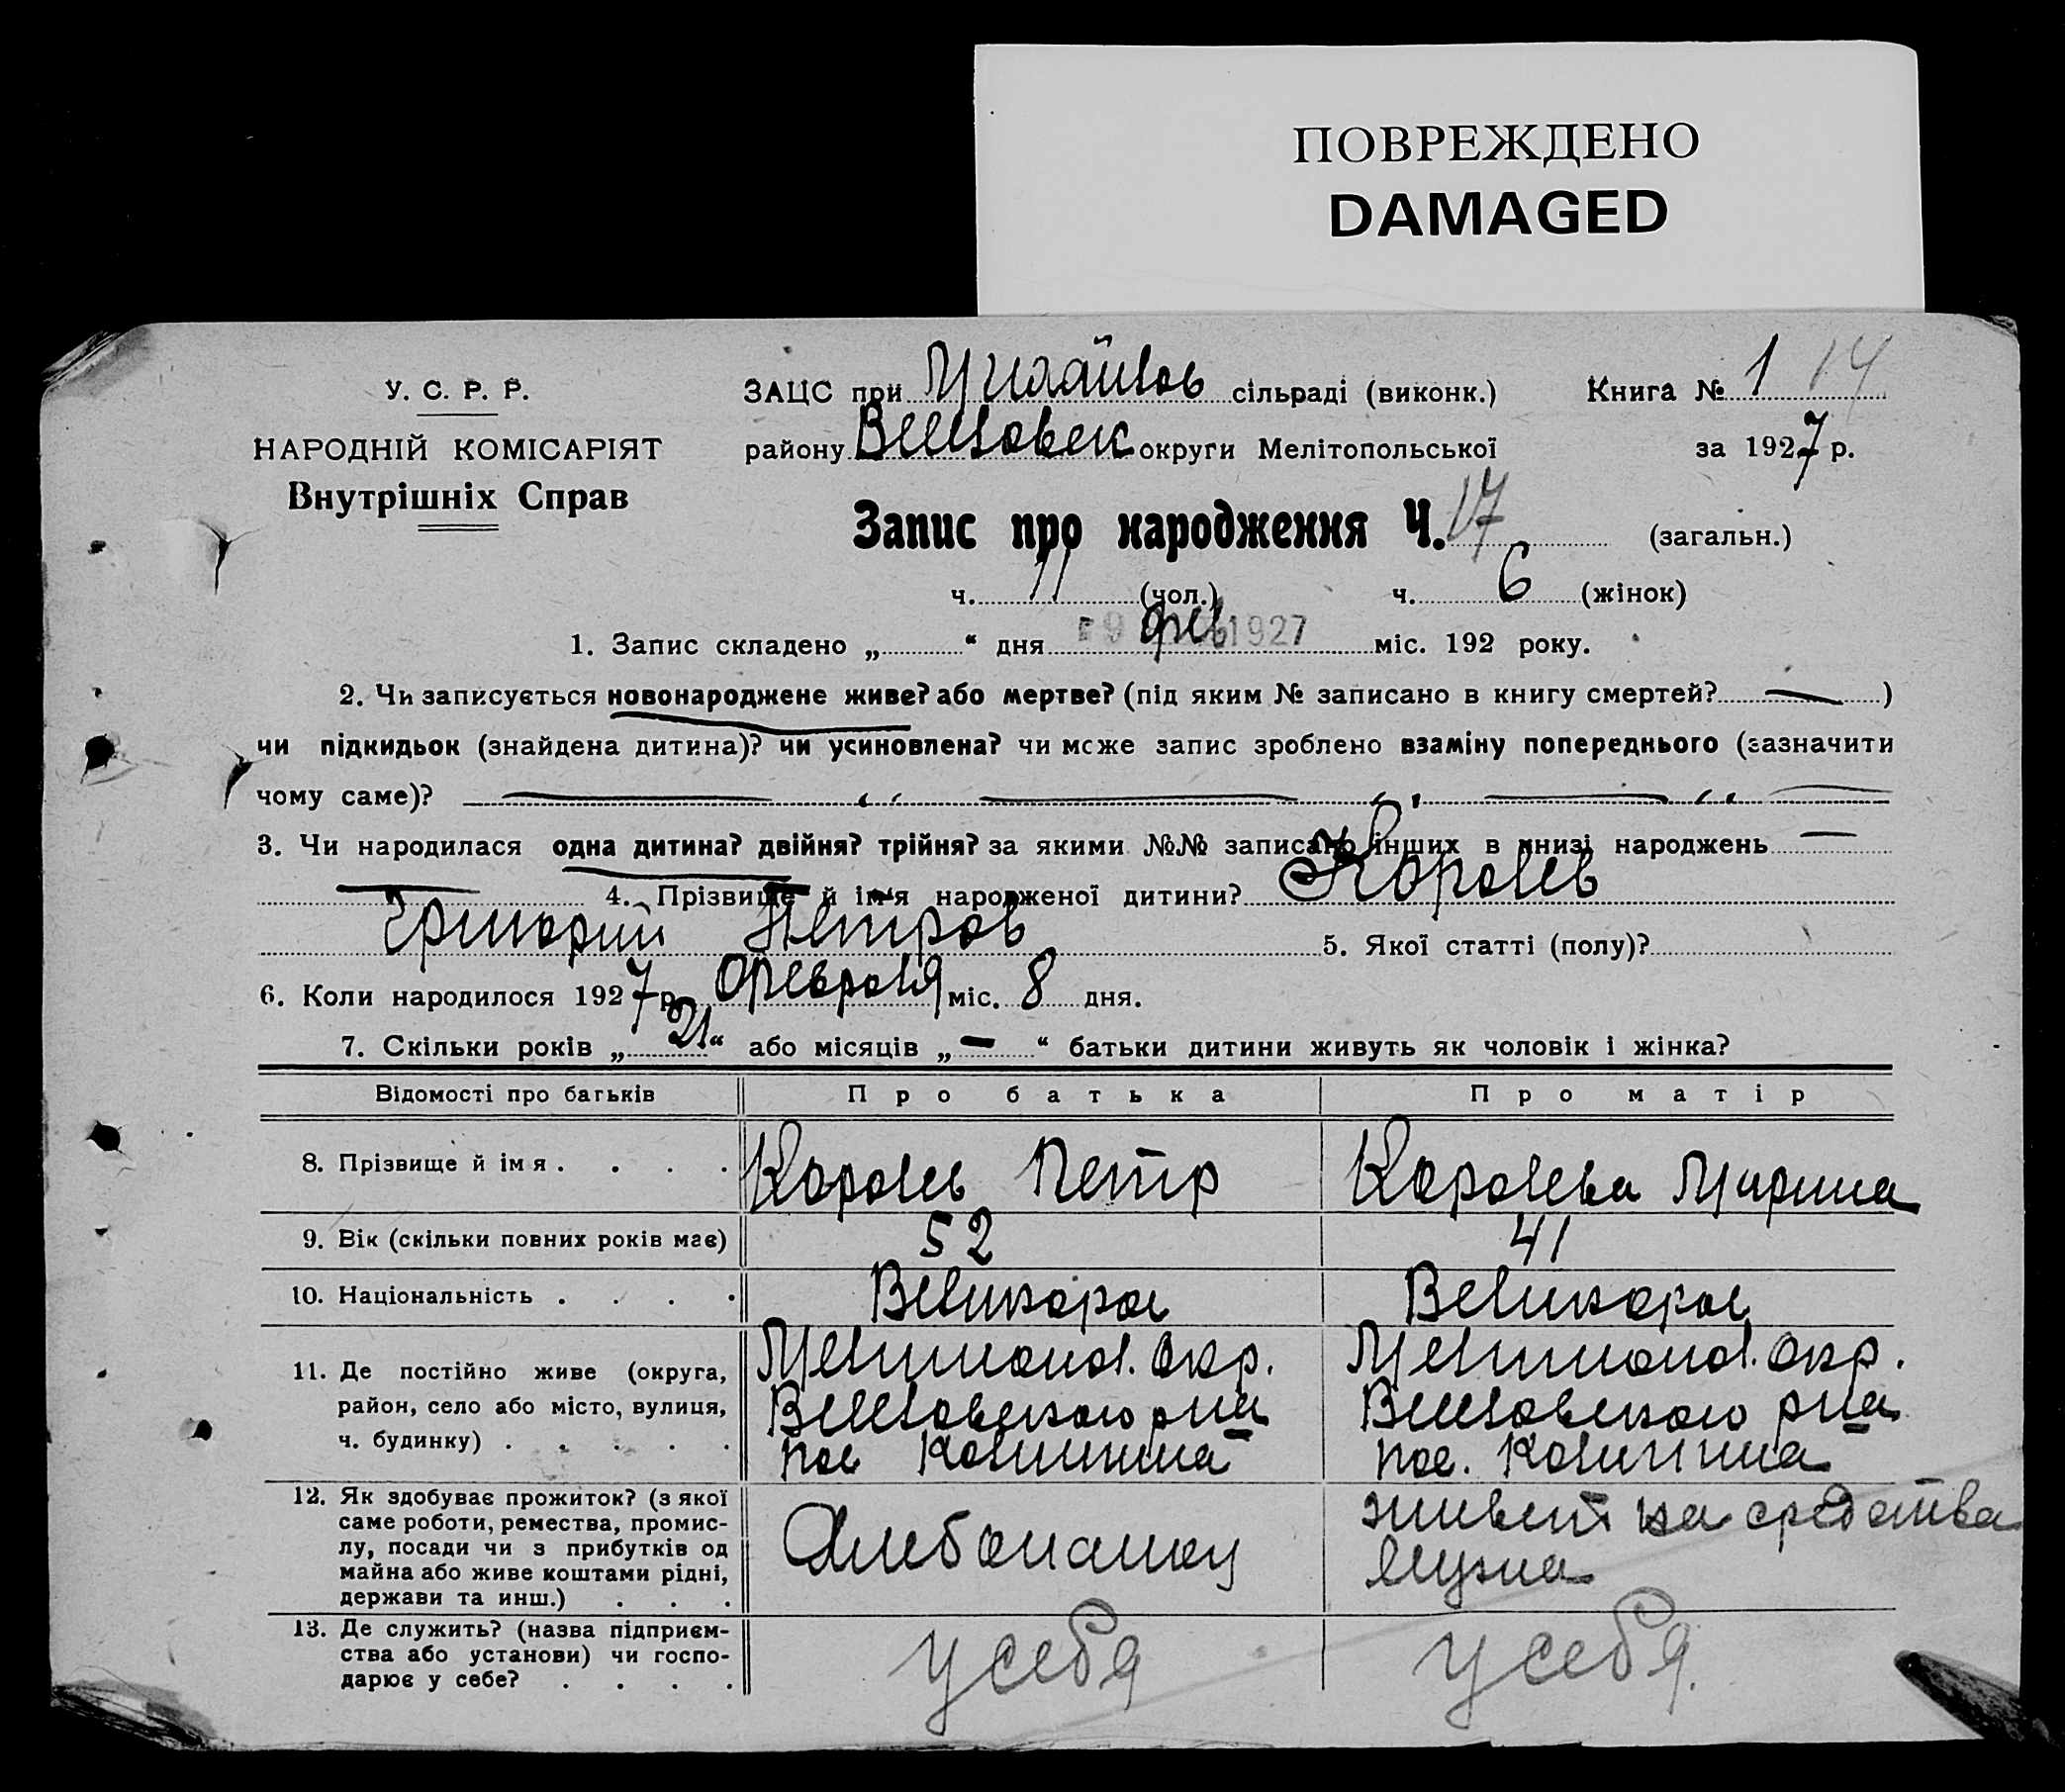 ПОВРЕЖДЕНО
DAMAGED
У. С. Р. Р.
НАРОДНІЙ КОМІСАРІЯТ
Внутрішніх Справ
ЗАЦС при Михайлов сільраді (виконк.)
Книга № 1 14
району Веселовск округи Мелітопольської
за 1927 р.
Запис про народження Ч. 17 (загальн.)
ч. 11 (чол.) ч. 6 (жінок)
1. Запис складено „ “ дня 9 фев 1927 міс. 192 року.
2. Чи записується новонароджене живе? або мертве? (під яким № записано в книгу смертей? — )
чи підкидьок (знайдена дитина)? чи усиновлена? чи може запис зроблено взаміну попереднього (зазначити
чому саме)? — „ — „ — „ —
3. Чи народилася одна дитина? двійня? трійня? за якими №№ записано інших в книзі народжень —
— 4. Прізвище й ім'я народженої дитини? Королев
Григорий Петров 5. Якої статті (полу)?
6. Коли народилося 1927 р. Февраля міс. 8 дня.
7. Скільки років „ 21 “ або місяців „ — “ батьки дитини живуть як чоловік і жінка?
Відомості про батьків Про батька Про матір
8. Прізвище й імя . . . . Королев Петр Королева Марина
9. Вік (скільки повних років має) 52 41
10. Національність . . . . Великорос Великорос
11. Де постійно живе (округа, Мелитопол. Окр. Мелитопол. Окр.
район, село або місто, вулиця, Веселовского р-на Веселовского р-на
ч. будинку) . . . . . пос Калинина пос. Калинина
12. Як здобуває прожиток? (з якої живет на средства
саме роботи, ремества, промис-
лу, посади чи з прибутків од Хлебопашец мужа
майна або живе коштами рідні,
держави та инш.) . . .
13. Де служить? (назва підприєм-
ства або установи) чи госпо- у себя у себя.
дарює у себе? . . . .